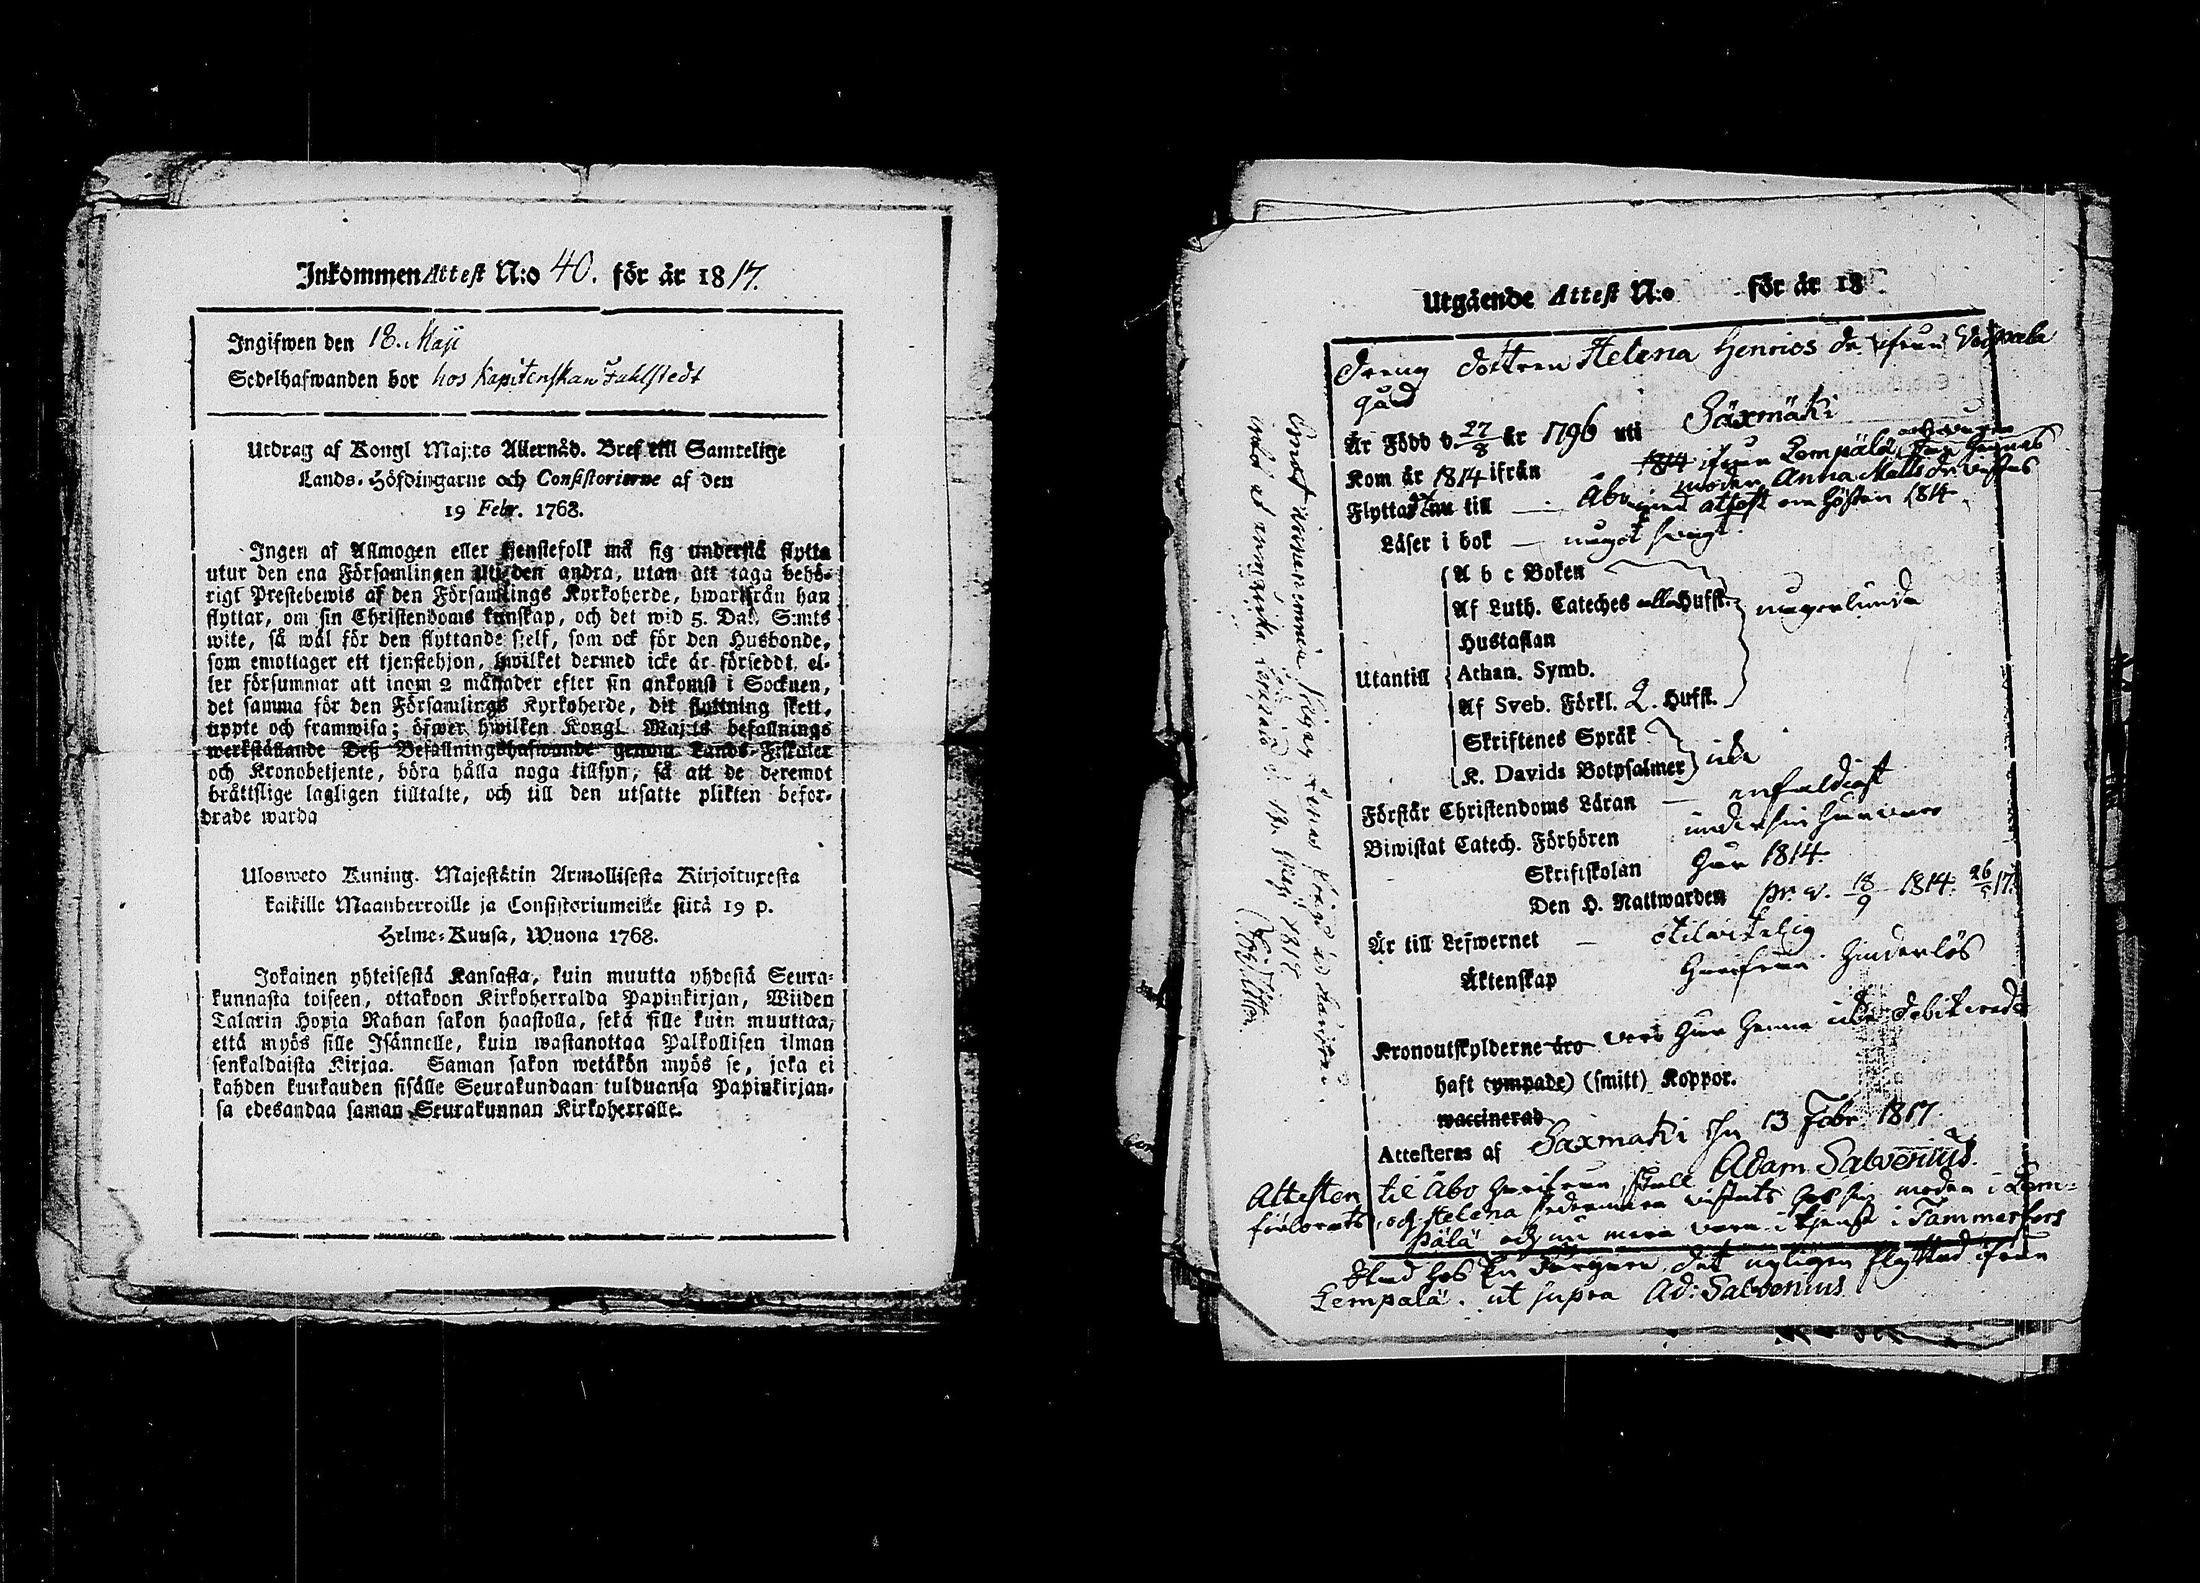 Inkommen Attest N:o 40. för år 1817.
Ingifwen den 18. Maji
Sedelhafwanden bor hos Kapitenskan Fahlstedt
Utdrag af Kongl Maj:ts Allernåd. Bref till Samtelige
Lands-Höfdingarne och Consistorierne af den
19 Febr. 1768.
Ingen af Allmogen eller tjenstefolk må sig understå flytta
utur den ena Församlingen uti den andra, utan att taga behö-
rigt Prestebewis af den Församlings Kyrkoherde, hwarifrån han
flyttar, om sin Christendoms kunskap, och det wid 5. Dal. S:mts
wite, så wäl för den flyttande sjelf, som ock för den Husbonde,
som emottager ett tjenstehjon, hwilket dermed icke är försedt, el-
ler försummar att inom 2 månader efter sin ankomst i Socknen,
det samma för den Församlings Kyrkoherde, dit flyttning skett,
uppte och framwisa; öfwer hwilken Kongl Maj:ts befallnings
werkställande Deß Befallningshafwande genom Lands-Fiskaler
och Kronobetjente, böra hålla noga tillsyn, så att de deremot
bråttslige lagligen tilltalte, och till den utsatte plikten befor-
drade warda
Ulosweto Kuning. Majestätin Armollisesta Kirjoituxesta
kaikille Maanherroille ja Consistoriumeille siitä 19 p.
Helme-Kuusa, Wuona 1768.
Jokainen yhteisestä Kansasta, kuin muutta yhdestä Seura-
kunnasta toiseen, ottakoon Kirkoherralda Papinkirjan, Wiiden
Talarin Hopia Rahan sakon haastolla, sekä sille kuin muuttaa,
että myös sille Isännelle, kuin wastanottaa Palkollisen ilman
senkaldaista Kirjaa. Saman sakon wetäkön myös se, joka ei
kahden kuukauden sisälle Seurakundaan tulduansa Papinkirjan-
sa edesandaa saman Seurakunnan Kirkoherralle.
Utgående Attest N:o för år 18
Dreng dottren Helena Henrics dr ifrån
gård
Är Född d 27/8 år 1796 uti Säxmäki
Kom år 1814 ifrån 1814 ifrån Lempälä
moder Anna Matts dr
Flyttar nu till Åbo med attest om hösten 1814
Läser i bok något swagt
A b c Boken
Af Luth. Cateches alla Hufst. någorlunda
Hustaflan
Utantill Athan. Symb.
Af Sveb. Förkl. 2. Hufst.
Skriftenes Språk
K. Davids Botpsalmer icke
Förstår Christendoms Läran enfaldigt
Biwistat Catech. Förhören under sin härvaro
Skriftskolan här 1814.
Den H. Nattwarden pr. v. 18/9 1814. 17.
Är till Lefwernet otilvitelig
Äktenskap härifrån hinderlös
Kronoutskylderne äro vero här henne icke debiterade
haft (ympade) (smitt) Koppor.
waccinerad
Attesteras af Saxmäki den 13 Febr. 1817
Adam Salvenius.
Attesten til Åbo härifrån skall
förlorats, och Helena sedermera vistats hos sin moder i Lem-
pälä och nu mera vara i tjenst i Tammerfors
Stad hos en Färgare, dit nyligen flyttad ifrån
Lempälä. ut supra Ad: Salvenius